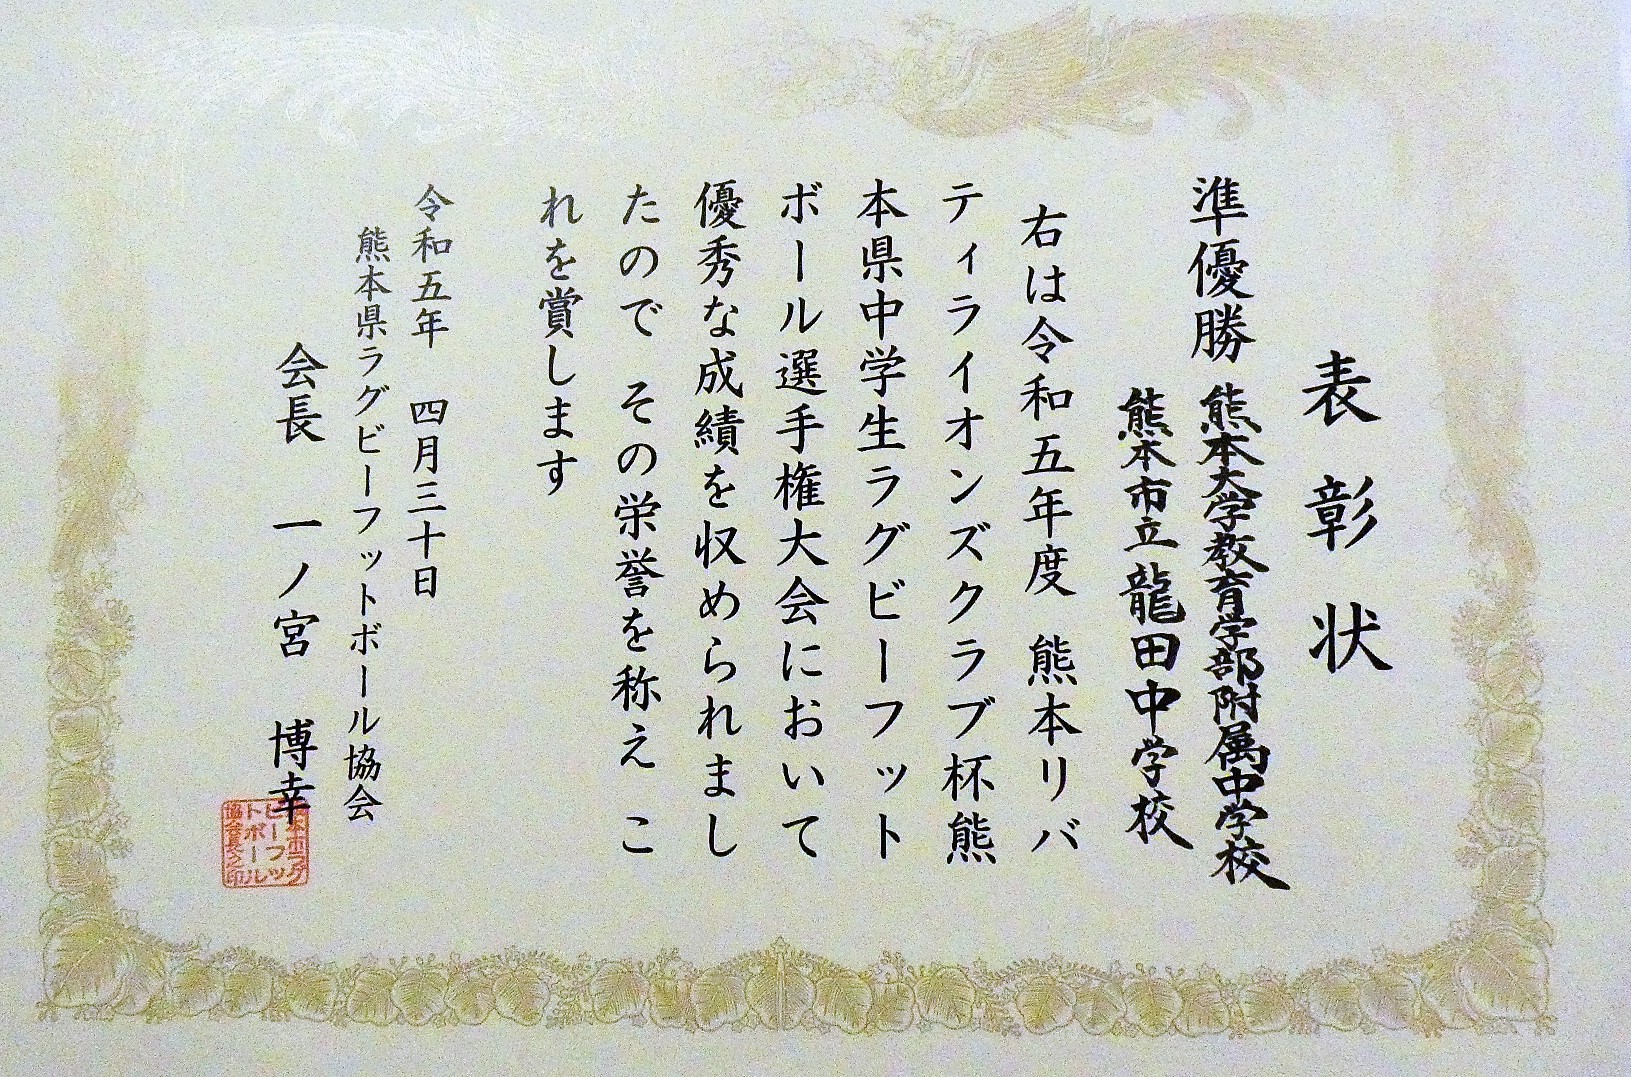 表彰状
準優勝 熊本大学教育学部附属中学校
熊本市立龍田中学校
右は令和五年度 熊本リバ
ティライオンズクラブ杯熊
本県中学生ラグビーフット
ボール選手権大会において
優秀な成績を収められまし
たので その栄誉を称え こ
れを賞します
令和五年 四月三十日
熊本県ラグビーフットボール協会
会長 一ノ宮 博幸
本県ラグ
ビーフッ
トボール
協会長之印